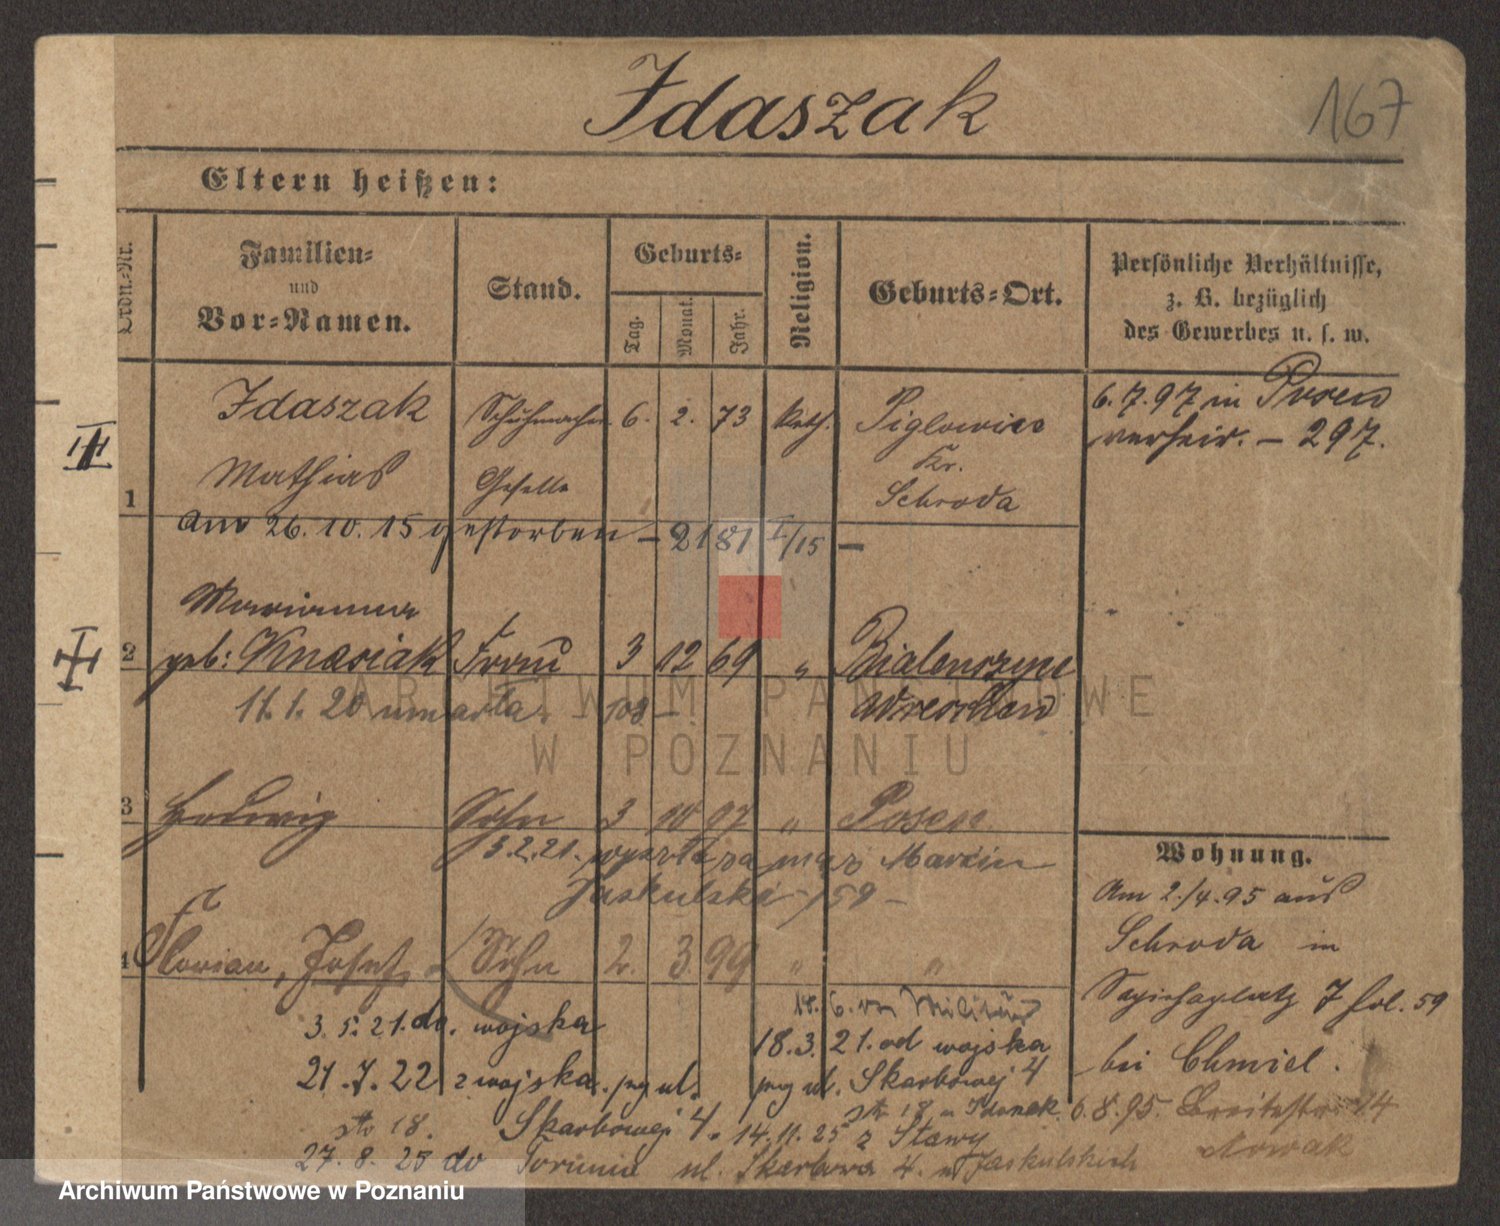 Idaszak
167
Eltern heißen:
Ordn.-Nr.
Familien-
und
Vor-Namen.
Stand.
Geburts-
Tag.
Monat.
Jahr.
Religion.
Geburts-Ort.
Persönliche Verhältnisse,
z. B. bezüglich
des Gewerbes u. s. w.
Idaszak Schuhmacher 6. 2. 73 kath. Piglowice
Kr.
1 Mathias Geselle Schroda
6.7.97 in Posen
verheir. - 297.
am 26.10.15 gestorben - 2181 I/15 -
Marianna
2 geb: Knasiak Frau 3 12 69 "
Wreschen
11.1.20 umarła 108 -
ARCHIWUM PAŃSTWOWE
W POZNANIU
3 Hedwig 3 10 97 " Posen
5.2.21. wyszła za mąż Marcin
Jaskulski - 159 -
4 Florian, Josef, Sohn 2. 3 99 " "
Wohnung.
Am 2./4.95 aus
Schroda in
Sapiehaplatz 7 fol. 59
bei Chmiel.
6.8.95. Breitestr. 14
Nowak
18.6. von Militär
3.5.21. do. wojska
18.3.21. od wojska
21.7.22 z wojska. prg ul.
prg ul. Skarbowej 4
str 18. Skarbowej 4.
str 18 u
14.11.25 z Stawy
27.8.25 do Torunia ul. Skarbowa 4. u Jaskulskich
Archiwum Państwowe w Poznaniu